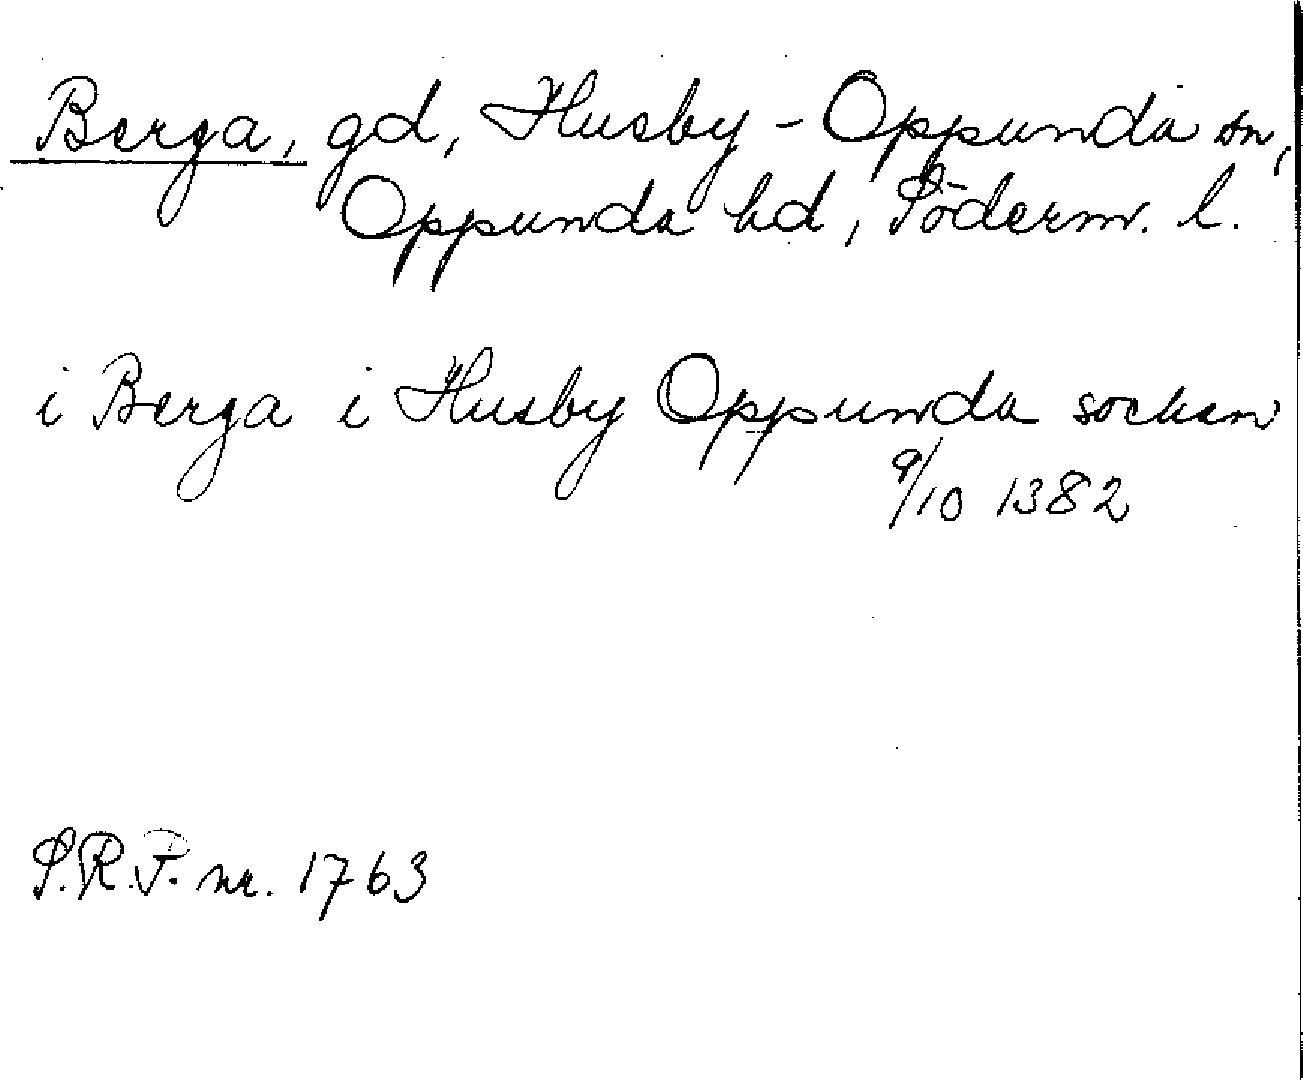 Berga, gd, Husby-Oppunda sn,
Oppunda hd, Söderm. l.
i Berga i Husby Oppunda socken
9/10 1382
S.R.P. nr. 1763